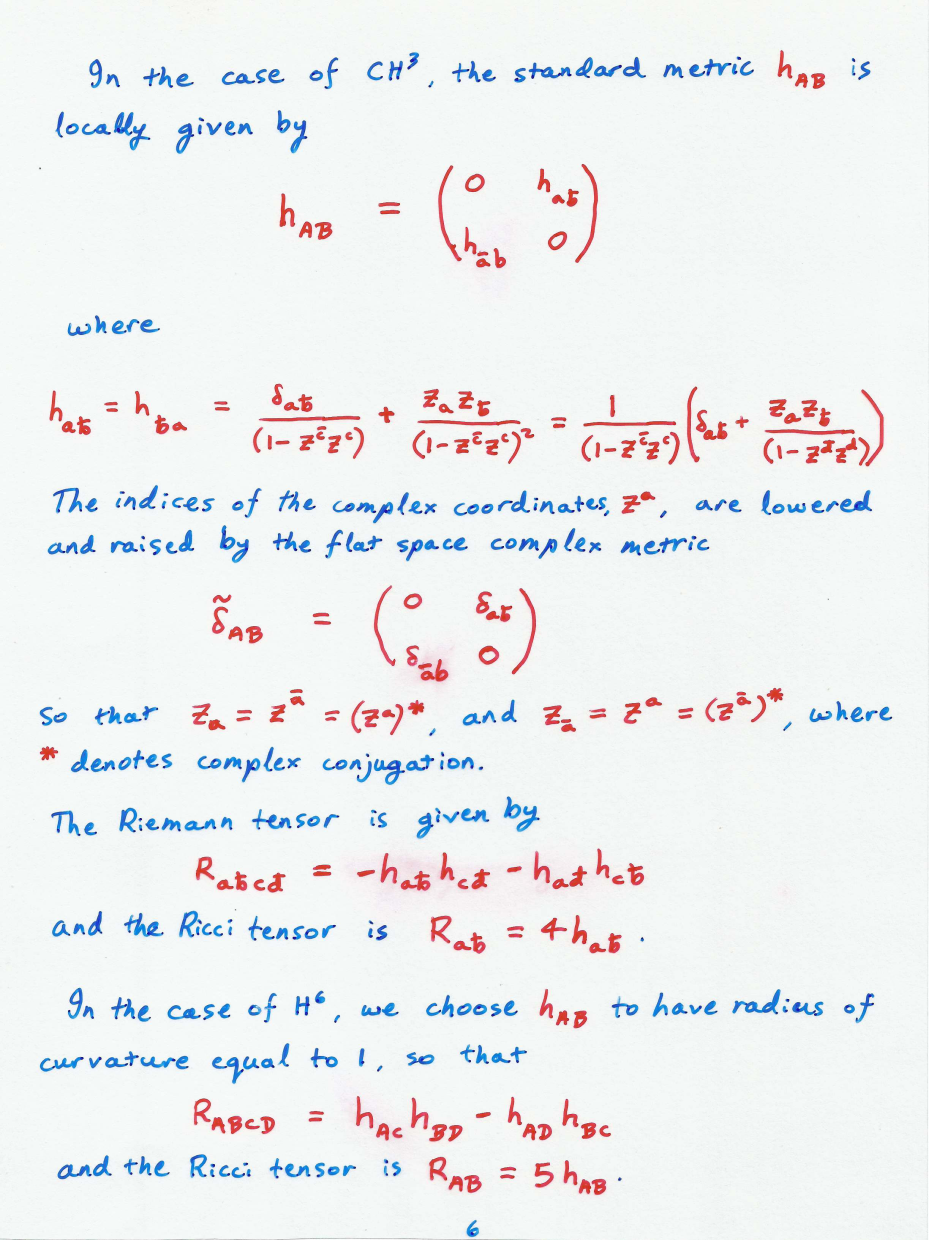 In the case of CH³, the standard metric h_{AB} is
locally given by
h_{AB} = \begin{pmatrix} 0 & h_{a\bar{b}} \\ h_{\bar{a}b} & 0 \end{pmatrix}
where
h_{a\bar{b}} = h_{\bar{b}a} = \frac{\delta_{a\bar{b}}}{(1 - z^{\bar{c}}z^{c})} + \frac{z_a z_{\bar{b}}}{(1 - z^{\bar{c}}z^{c})^2} = \frac{1}{(1 - z^{\bar{c}}z^{c})} \left( \delta_{a\bar{b}} + \frac{z_a z_{\bar{b}}}{(1 - z^{\bar{d}}z^{d})} \right)
The indices of the complex coordinates, z^a, are lowered
and raised by the flat space complex metric
\tilde{\delta}_{AB} = \begin{pmatrix} 0 & \delta_{a\bar{b}} \\ \delta_{\bar{a}b} & 0 \end{pmatrix}
so that z_a = z^{\bar{a}} = (z^a)^*, and z_{\bar{a}} = z^a = (z^{\bar{a}})^*, where
* denotes complex conjugation.
The Riemann tensor is given by
R_{a\bar{b}c\bar{d}} = -h_{a\bar{b}} h_{c\bar{d}} - h_{a\bar{d}} h_{c\bar{b}}
and the Ricci tensor is R_{a\bar{b}} = 4h_{a\bar{b}}.
In the case of H⁶, we choose h_{AB} to have radius of
curvature equal to 1, so that
R_{ABCD} = h_{AC} h_{BD} - h_{AD} h_{BC}
and the Ricci tensor is R_{AB} = 5h_{AB}.
6